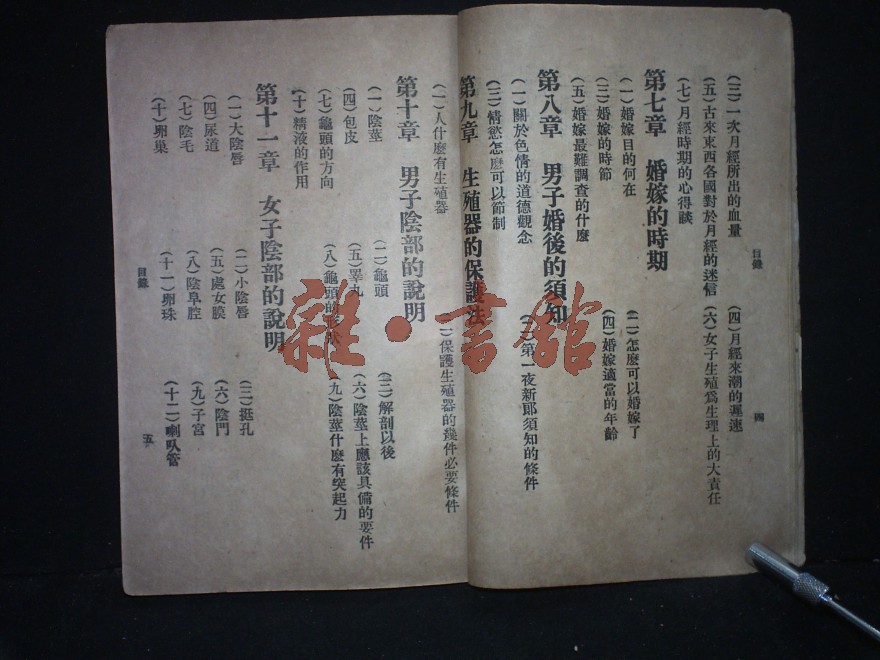 目錄
四
(三)一次月經所出的血量 (四)月經來潮的遲速
(五)古來東西各國對於月經的迷信 (六)女子生殖為生理上的大責任
(七)月經時期的心得談
第七章 婚嫁的時期
(一)婚嫁目的何在 (二)怎麼可以婚嫁了
(三)婚嫁的時節 (四)婚嫁適當的年齡
(五)婚嫁最難調查的什麼
第八章 男子婚後的須知
(一)關於色情的道德觀念 (二)第一夜新郎須知的條件
(三)情慾怎麼可以節制
第九章 生殖器的保護法
(一)人什麼有生殖器 (二)保護生殖器的幾件必要條件
第十章 男子陰部的說明
(一)陰莖 (二)龜頭 (三)解剖以後
(四)包皮 (五)睪丸 (六)陰莖上應該具備的要件
(七)龜頭的方向 (八)龜頭的 (九)陰莖什麼有突起力
(十)精液的作用
第十一章 女子陰部的說明
(一)大陰唇 (二)小陰唇 (三)挺孔
(四)尿道 (五)處女膜 (六)陰門
(七)陰毛 (八)陰阜腔 (九)子宮
(十)卵巢 (十一)卵珠 (十二)喇叭管
目錄
五
雜·書館